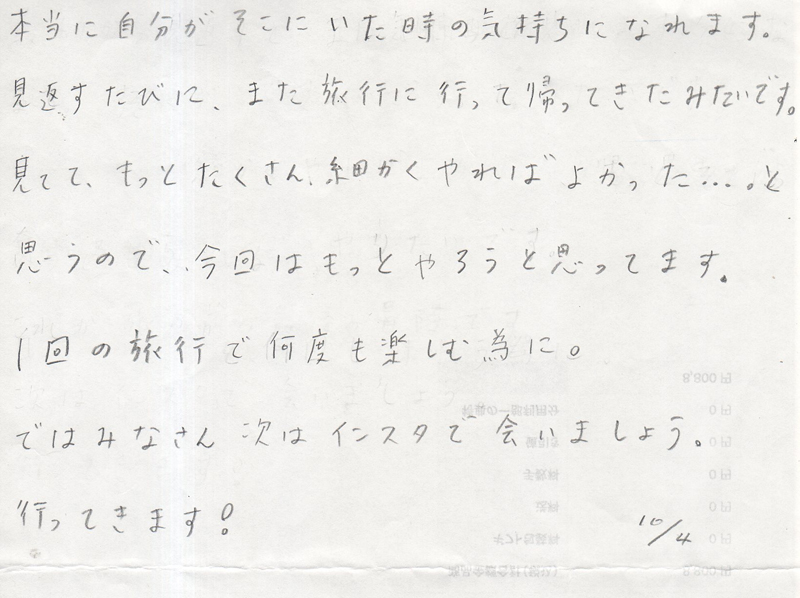 本当に自分がそこにいた時の気持ちになれます。
見返すたびに、また旅行に行って帰ってきたみたいです。
見てて、もっとたくさん、細かくやればよかった…。と
思うので、今回はもっとやろうと思ってます。
1回の旅行で何度も楽しむ為に。
ではみなさん次はインスタで会いましょう。
行ってきます!
10/4